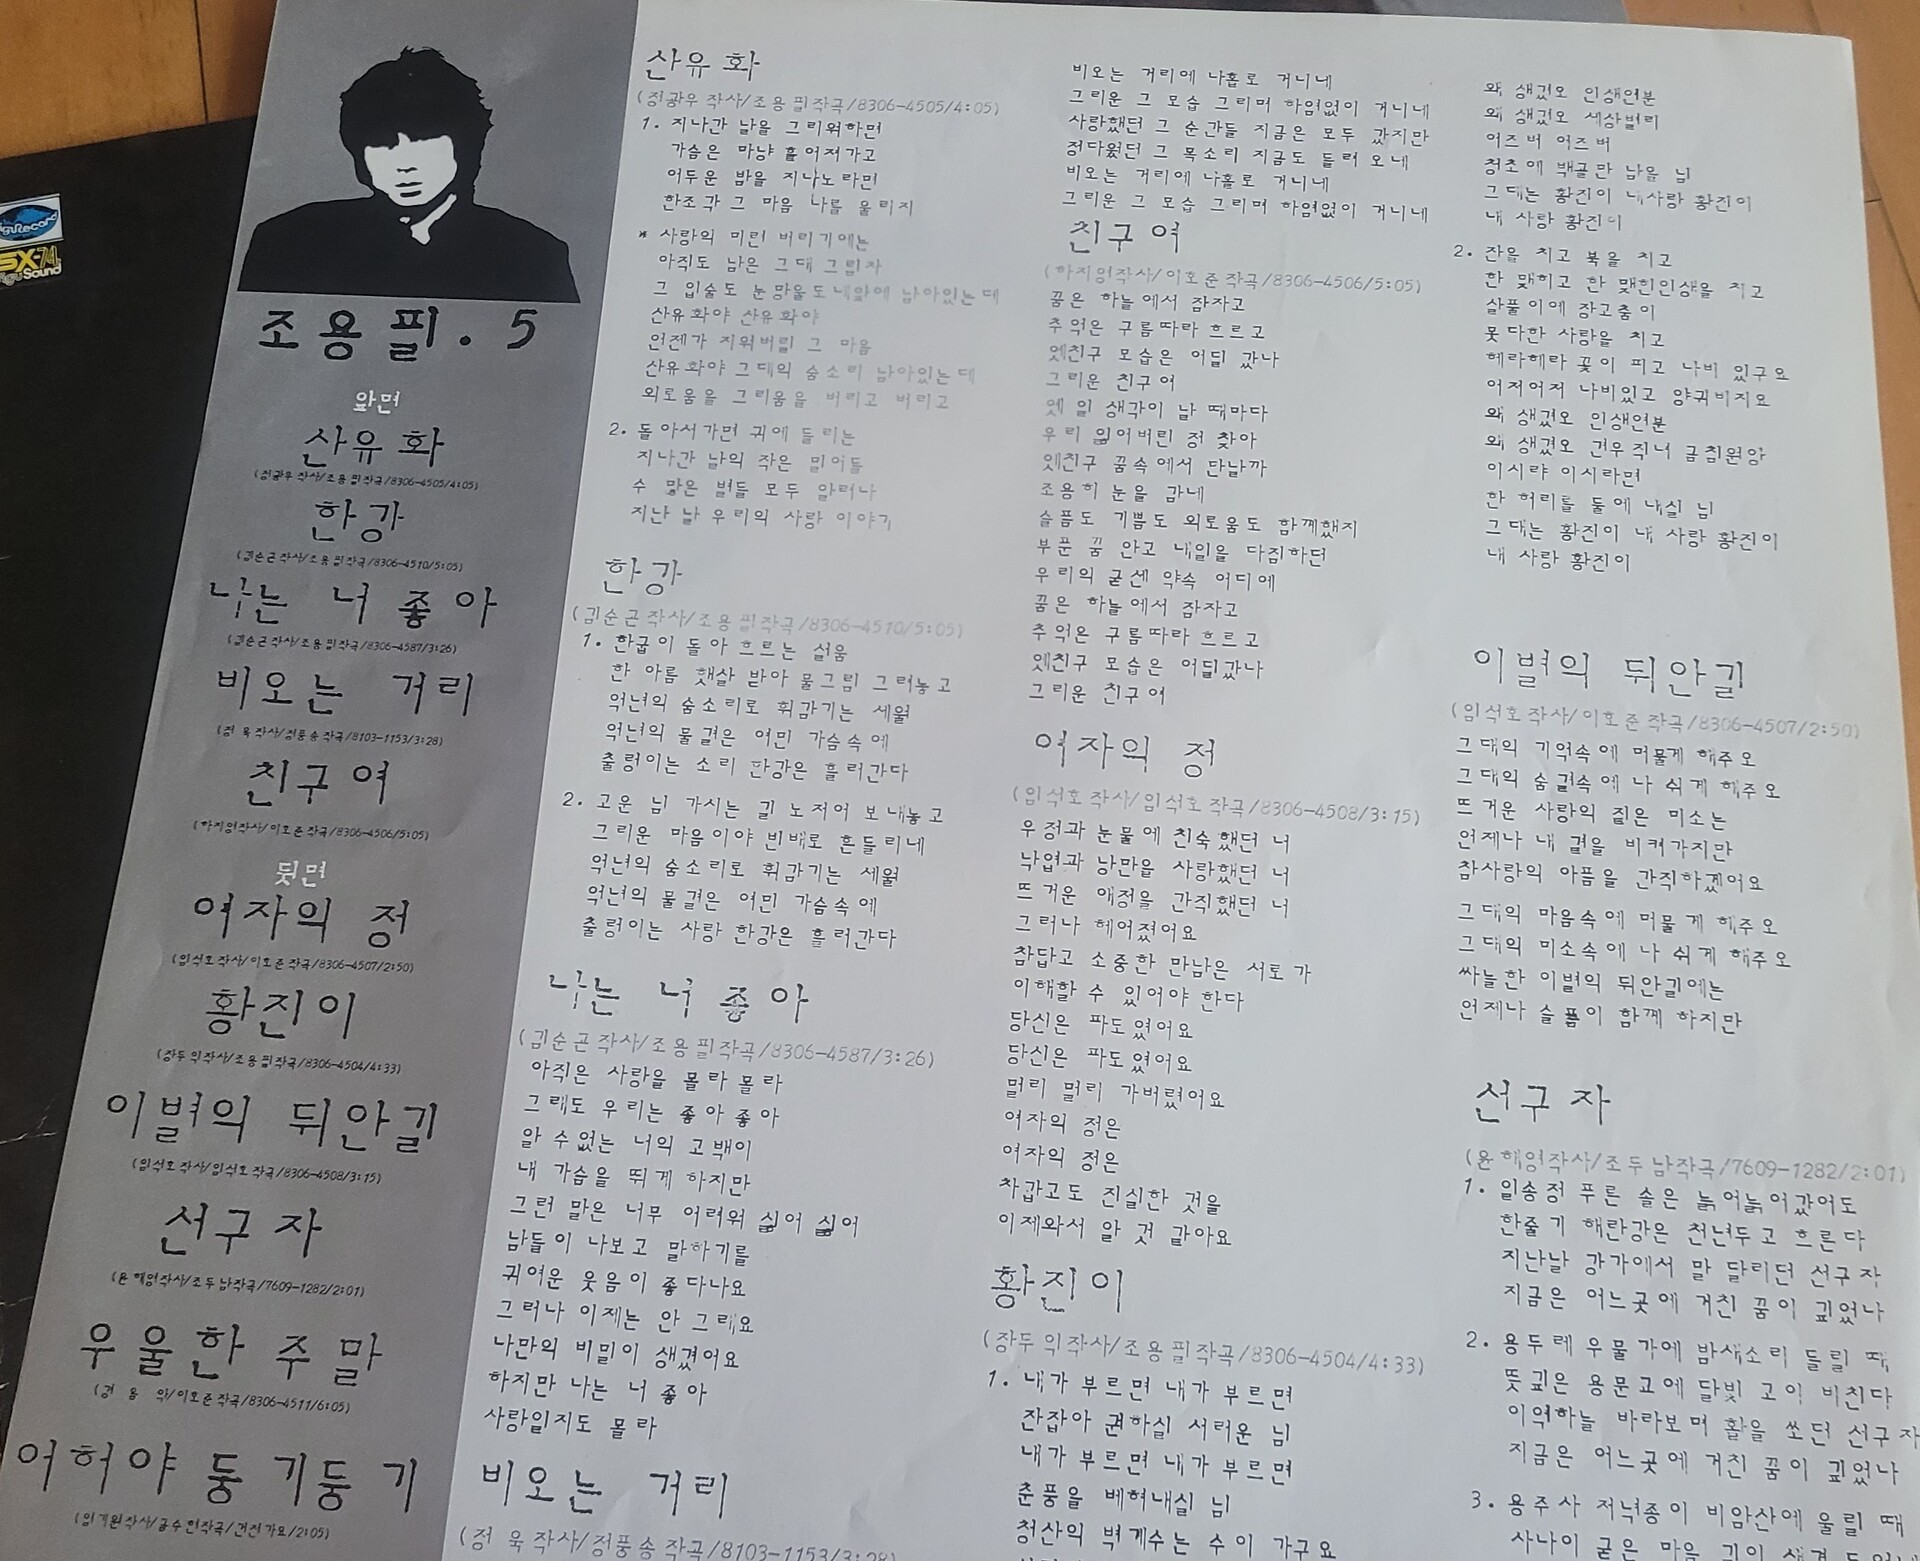 SX-74
Sound
조용필.5
앞면
산유화
(정광우 작사/조용필 작곡/8306-4505/4:05)
한강
(김순곤 작사/조용필 작곡/8306-4510/5:05)
나는 너 좋아
(김순곤 작사/조용필 작곡/8306-4587/3:26)
비오는 거리
(정 욱 작사/정풍송 작곡/8103-1153/3:28)
친구여
(하지영작사/이호준 작곡/8306-4506/5:05)
뒷면
여자의 정
(임석호 작사/이호준 작곡/8306-4507/2:50)
황진이
(장두익작사/조용필작곡/8306-4504/4:33)
이별의 뒤안길
(임석호 작사/임석호 작곡/8306-4508/3:15)
선구자
(윤해영작사/조두남작곡/7609-1282/2:01)
우울한 주말
/이호준 작곡/8306-4511/6:05)
어허야 둥기둥기
(임기원작사/금수현작곡/건전가요/2:05)
산유화
(정광우 작사/조용필작곡/8306-4505/4:05)
1. 지나간 날을 그리워하면
가슴은 마냥 흩어져가고
어두운 밤을 지나노라면
한조각 그 마음 나를 울리지
* 사랑의 미련 버리기에는
아직도 남은 그대 그림자
그 입술도 눈망울도 내맘에 남아있는데
산유화야 산유화야
언젠가 지워버릴 그 마음
산유화야 그대의 숨소리 남아있는데
외로움을 그리움을 버리고 버리고
2. 돌아서가면 귀에 들리는
지나간 날의 작은 밀어들
수 많은 별들 모두 알려나
지난 날 우리의 사랑 이야기
한강
(김순곤작사/조용필작곡/8306-4510/5:05)
1. 한굽이 돌아 흐르는 설움
한 아름 햇살 받아 물그림 그려놓고
억년의 숨소리로 휘감기는 세월
억년의 물결은 여민 가슴속에
출렁이는 소리 한강은 흘러간다
2. 고운 님 가시는 길 노저어 보내놓고
그리운 마음이야 빈배로 흔들리네
억년의 숨소리로 휘감기는 세월
억년의 물결은 여민 가슴속에
출렁이는 사랑 한강은 흘러간다
나는 너 좋아
(김순곤작사/조용필작곡/8306-4587/3:26)
아직은 사랑을 몰라 몰라
그래도 우리는 좋아좋아
알 수 없는 너의 고백이
내 가슴을 뛰게 하지만
그런 말은 너무 어려워 싫어 싫어
남들이 나보고 말하기를
귀여운 웃음이 좋다나요
그러나 이제는 안 그래요
나만의 비밀이 생겼어요
하지만 나는 너 좋아
사랑일지도 몰라
비오는 거리
(정 욱작사/정풍송작곡/8103-1153/3:28)
비오는 거리에 나홀로 거니네
그리운 그 모습 그리며 하염없이 거니네
사랑했던 그 순간들 지금은 모두 갔지만
정다웠던 그 목소리 지금도 들려 오네
비오는 거리에 나홀로 거니네
그리운 그 모습 그리며 하염없이 거니네
친구여
(하지영작사/이호준작곡/8306-4506/5:05)
꿈은 하늘에서 잠자고
추억은 구름따라 흐르고
옛친구 모습은 어딜 갔나
그리운 친구여
옛 일 생각이 날 때마다
우리 잃어버린 정 찾아
옛친구 꿈속에서 만날까
조용히 눈을 감네
슬픔도 기쁨도 외로움도 함께했지
부푼 꿈 안고 내일을 다짐하던
우리의 굳센 약속 어디에
꿈은 하늘에서 잠자고
추억은 구름따라 흐르고
옛친구 모습은 어딜갔나
그리운 친구여
여자의 정
(임석호작사/임석호작곡/8306-4508/3:15)
우정과 눈물에 친숙했던 너
낙엽과 낭만을 사랑했던 너
뜨거운 애정을 간직했던 너
그러나 헤어졌어요
참답고 소중한 만남은 서로가
이해할 수 있어야 한다
당신은 파도였어요
당신은 파도였어요
멀리 멀리 가버렸어요
여자의 정은
여자의 정은
차갑고도 진실한 것을
이제와서 알 것 같아요
황진이
(장두익작사/조용필작곡/8306-4504/4:33)
1. 내가 부르면 내가 부르면
잔잡아 권하실 서러운 님
내가 부르면 내가 부르면
춘풍을 베혀내실 님
청산의 벽계수는 수이 가구요
왜 생겼오 인생연분
왜 생겼오 세상별리
어즈버 어즈버
청초에 백골만 남을 님
그대는 황진이 내사랑 황진이
내 사랑 황진이
2. 잔을 치고 북을 치고
한 맺히고 한 맺힌인생을 치고
살풀이에 장고춤이
못다한 사랑을 치고
헤라헤라 꽃이 피고 나비 있구요
어저어저 나비있고 양귀비지요
왜 생겼오 인생연분
왜 생겼오 견우직녀 금침원앙
이시랴 이시라면
한 허리를 둘에 내실 님
그대는 황진이 내 사랑 황진이
내 사랑 황진이
이별의 뒤안길
(임석호작사/이호준작곡/8306-4507/2:50)
그대의 기억속에 머물게 해주오
그대의 숨결속에 나 쉬게 해주오
뜨거운 사랑의 짙은 미소는
언제나 내 곁을 비켜가지만
참사랑의 아픔을 간직하겠어요
그대의 마음속에 머물게 해주오
그대의 미소속에 나 쉬게 해주오
싸늘한 이별의 뒤안길에는
언제나 슬픔이 함께 하지만
선구자
(윤해영작사/조두남작곡/7609-1282/2:01)
1. 일송정 푸른 솔은 늙어늙어갔어도
한줄기 해란강은 천년두고 흐른다
지난날 강가에서 말 달리던 선구자
지금은 어느곳에 거친 꿈이 깊었나
2. 용두레 우물가에 밤새소리 들릴 때
뜻깊은 용문교에 달빛 고이 비친다
이역하늘 바라보며 활을 쏘던 선구자
지금은 어느곳에 거친 꿈이 깊었나
3. 용주사 저녁종이 비암산에 울릴 때
사나이 굳은 마음 깊이